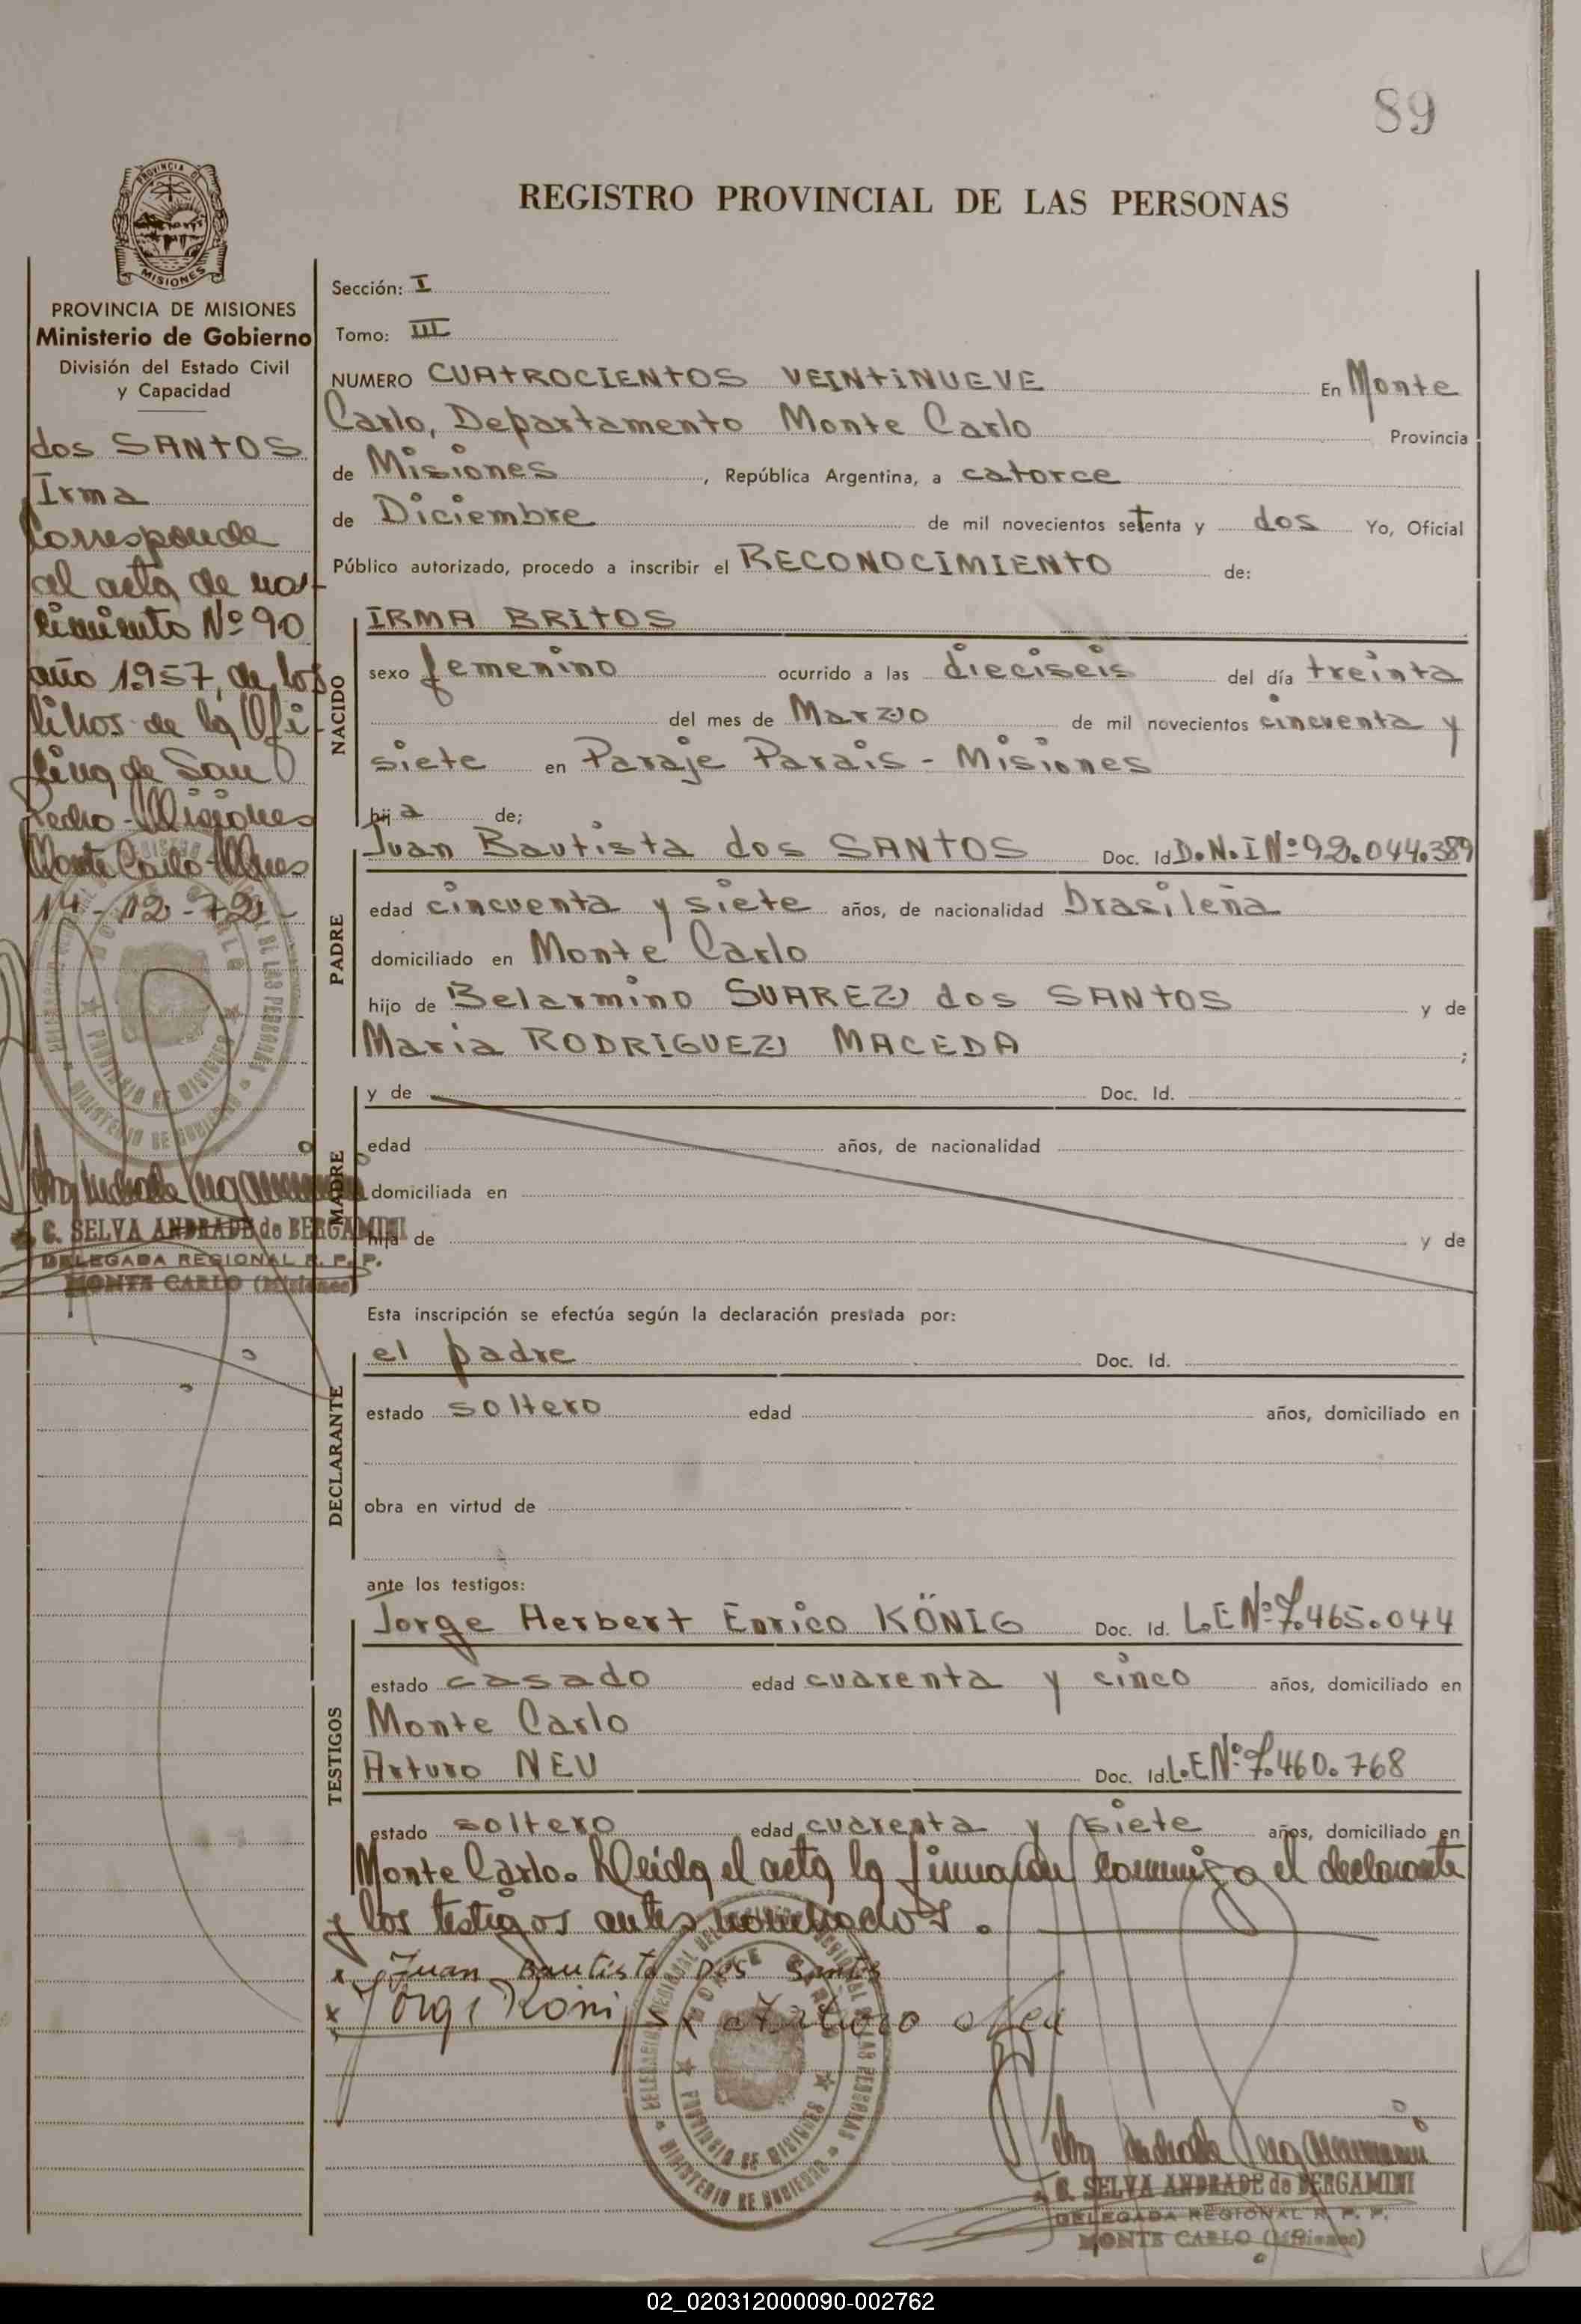 89
PROVINCIA DE
MISIONES
REGISTRO PROVINCIAL DE LAS PERSONAS
PROVINCIA DE MISIONES
Ministerio de Gobierno
División del Estado Civil
y Capacidad
dos SANTOS
Irma
Corresponde
al acta de na-
cimiento Nº 90
año 1957, de los
libros de la Ofi-
cina de San
Pedro - Misiones
Monte Carlo - Mnes
14-12-72-
C. SELVA ANDRADE de BERGAMINI
DELEGADA REGIONAL R. P. P.
MONTE CARLO (Misiones)
Sección: I
Tomo: III
NUMERO CUATROCIENTOS VEINTINUEVE En Monte
Carlo, Departamento Monte Carlo Provincia
de Misiones, República Argentina, a catorce
de Diciembre de mil novecientos setenta y dos Yo, Oficial
Público autorizado, procedo a inscribir el RECONOCIMIENTO de:
NACIDO
IRMA BRITOS
sexo femenino ocurrido a las dieciseis del día treinta
del mes de Marzo de mil novecientos cincuenta y
siete en Paraje Parais - Misiones
hija de;
PADRE
Juan Bautista dos SANTOS Doc. Id D.N.I Nº 92.044.389
edad cincuenta y siete años, de nacionalidad brasileña
domiciliado en Monte Carlo
hijo de Belarmino SUAREZ dos SANTOS y de
Maria RODRIGUEZ MACEDA ;
MADRE
y de Doc. Id.
edad años, de nacionalidad
domiciliada en
hija de y de
Esta inscripción se efectúa según la declaración prestada por:
DECLARANTE
el padre Doc. Id.
estado soltero edad años, domiciliado en
obra en virtud de
ante los testigos:
TESTIGOS
Jorge Herbert Enrico KÖNIG Doc. Id. L.E Nº 7.465.044
estado casado edad cuarenta y cinco años, domiciliado en
Monte Carlo
Arturo NEU Doc. Id. L.E Nº 7.460.768
estado soltero edad cuarenta y siete años, domiciliado en
Monte Carlo. Leida el acta la firmaron conmigo el declarante
y los testigos antes nombrados.
x Juan Bautista Dos Santos
x Jorge König x Arturo Neu
DELEGACIO REGIONAL DEL REGISTRO PROVINCIAL DE LAS PERSONAS
MONTE CARLO
PROVINCIA DE MISIONES
MINISTERIO DE GOBIERNO
C. SELVA ANDRADE de BERGAMINI
DELEGADA REGIONAL R. P. P.
MONTE CARLO (Misiones)
02_020312000090-002762